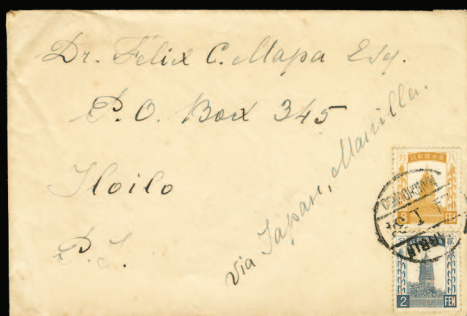 Dr. Felix C. Mapa Esq.
P.O. Box 345
Iloilo
P.I.
Via Japan, Manilla.
2
FEN